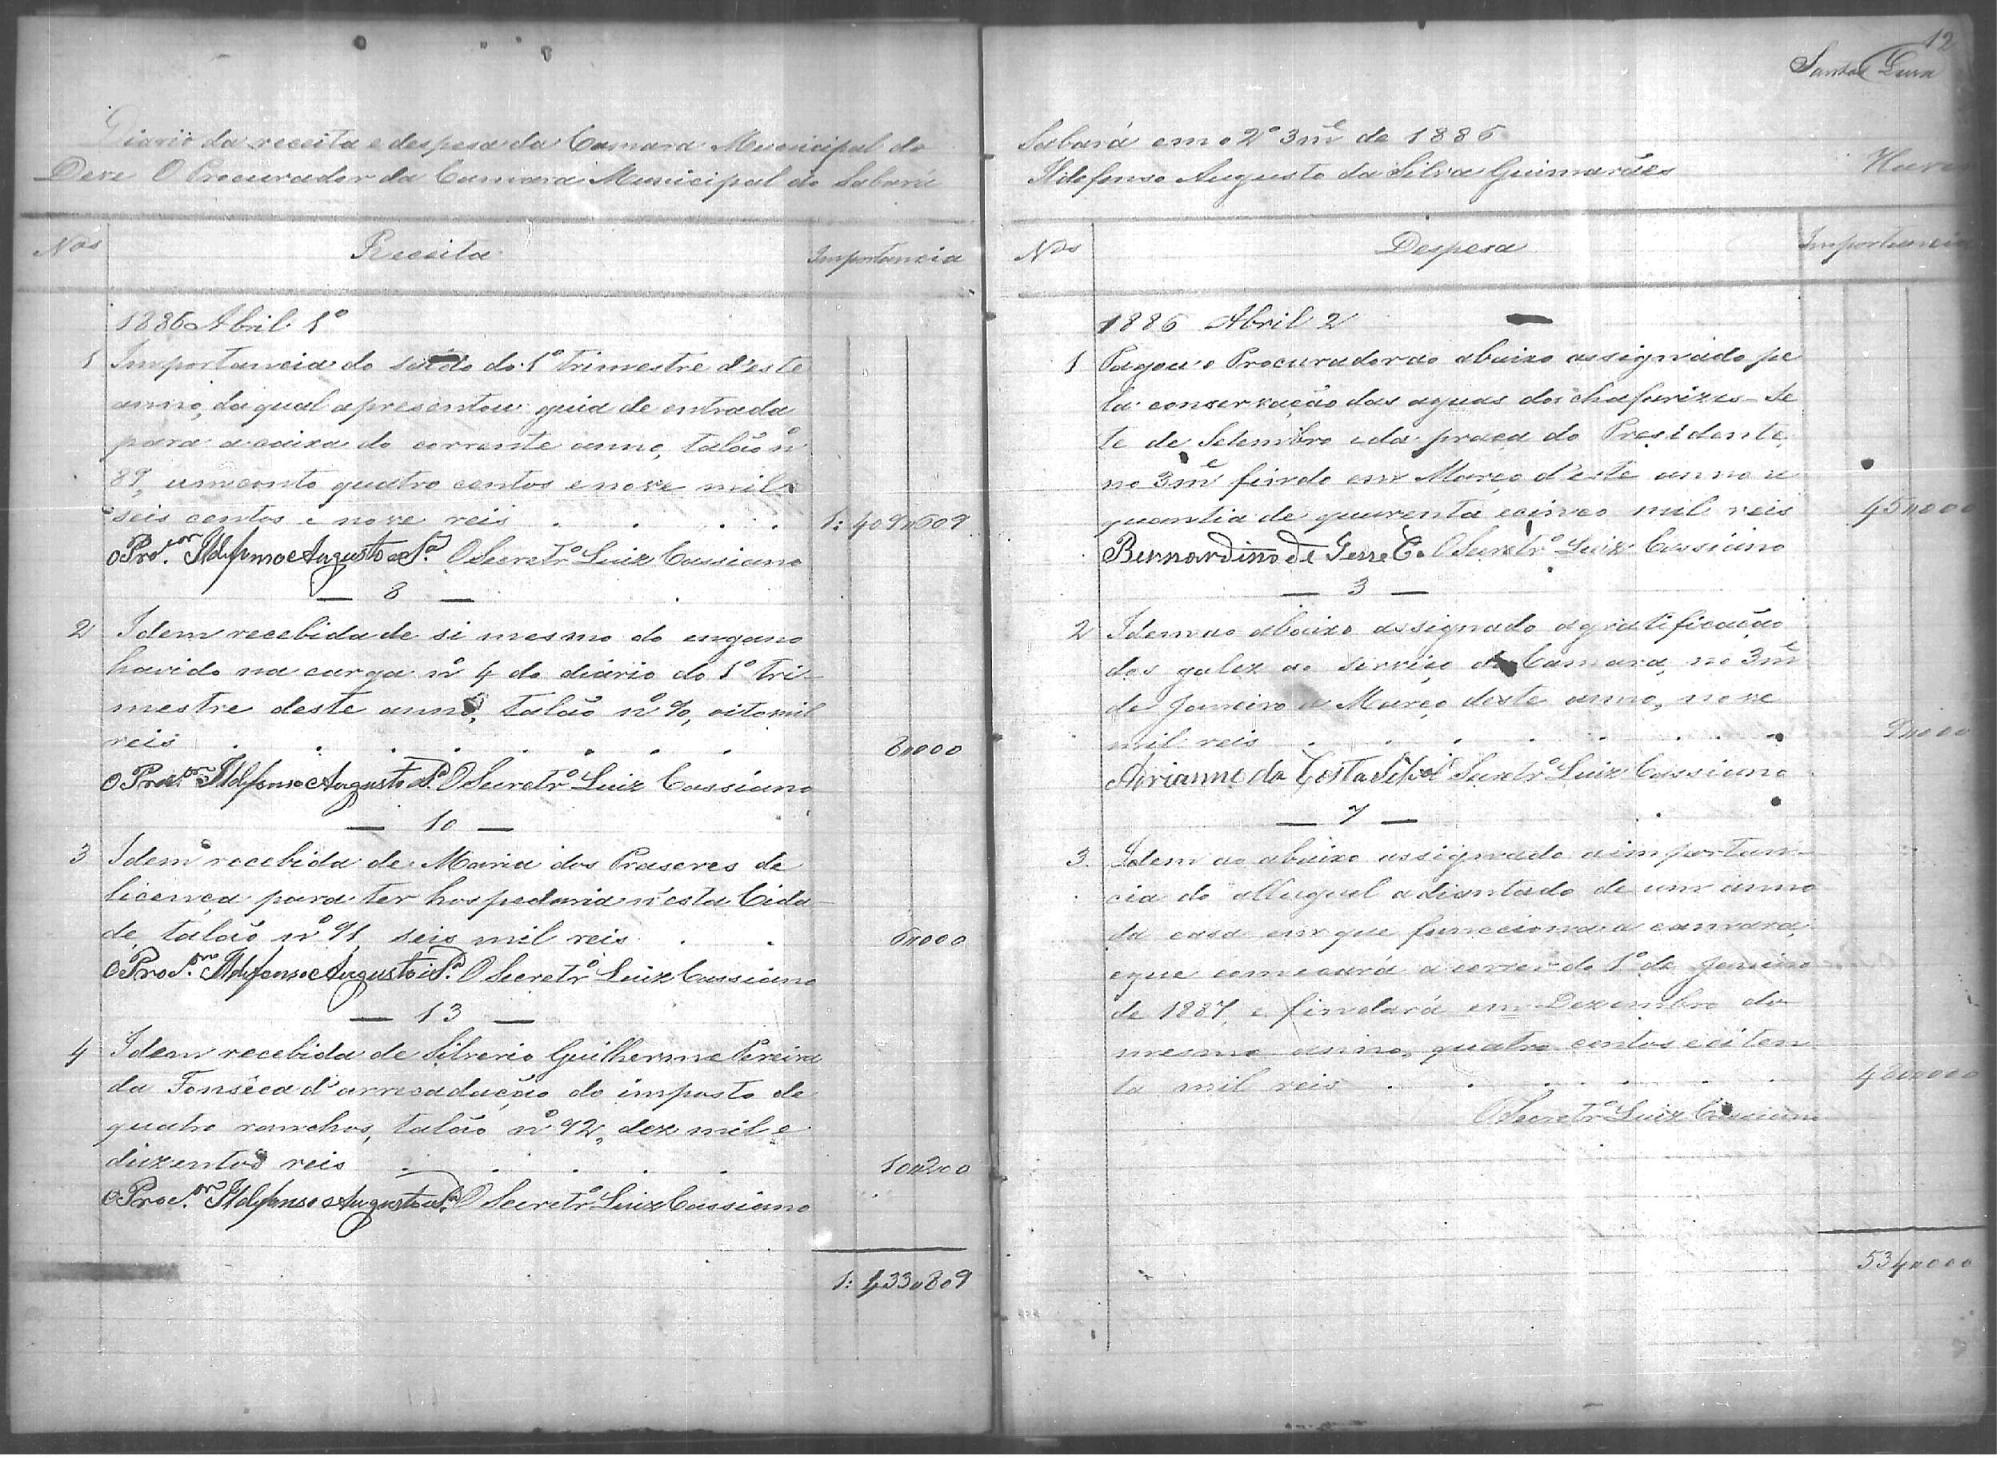 Diario da receita e despesa da Camara Municipal do
Deve O Procurador da Camara Municipal do Sabará
Nos Receita Importancia
1886 Abril 1º
1 Importancia do saldo do 1º Trimestre d'este
anno, da qual apresentou guia de entrada
para a caixa do corrente anno, talão nº
89, um conto quatro centos e nove mil
seis centos e nove reis . . . . . 1:409\\609
O Pro.or Ildefonso Augusto a S.a O Secretrº Luiz Cassiano
— 8 —
2 Idem recebida de si mesmo do engano
havido na carga nº 4 do diario do 1º Tri-
mestre deste anno, talão nº 90, oito mil
reis . . . . . . . . 8\\000
O Proc.or Ildefonso Augusto a S.a O Secretrº Luiz Cassiano
— 10 —
3 Idem recebida de Maria dos Praseres de
licença para ter hospedaria n'esta Cida-
de, talão nº 91, seis mil reis . . 6\\000
O Proc.or Ildefonso Augusto a S.a O Secretrº Luiz Cassiano
— 13 —
4 Idem recebida de Silverio Guilherme Pereira
da Fonsêca d'arrecadação do imposto de
quatro ranchos, talão nº 92, dez mil e
duzentos reis . . . . . 10\\200
O Proc.or Ildefonso Augusto a S.a O Secretrº Luiz Cassiano
1:433\\809
12
Santos
Sabará em o 2º 3me de 1886
Ildefonso Augusto da Silva Guimarães Haver
Nos Despesa Importancia
1886 Abril 2
1 Pagou o Procurador ao abaixo assignado pe
la conservação das aguas dos chafarizes - Se
te de Setembro e da praça do Presidente,
no 3me findo em Março d'este anno a
quantia de quarenta e cinco mil reis 45\\000
Bernardino de O Secretrº Luiz Cassiano
— 3 —
2 Idem ao abaixo assignado a gratificação
dos galez ao serviço da Camara, no 3me
de Janeiro a Março deste anno, nove
mil reis . . . . . . . 9\\000
Adrianno da Costa Silva O Secretrº Luiz Cassiano
— 7 —
3 Idem ao abaixo assignado a importan-
cia do alluguel adiantado de um anno
da casa em que funcciona a camara,
e que começará a correr do 1º de Janeiro
de 1887, e findará em Dezembro do
mesmo anno, quatro centos e oiten
ta mil reis . . . . . . 480\\000
O Secretrº Luiz Cassiano
534\\000